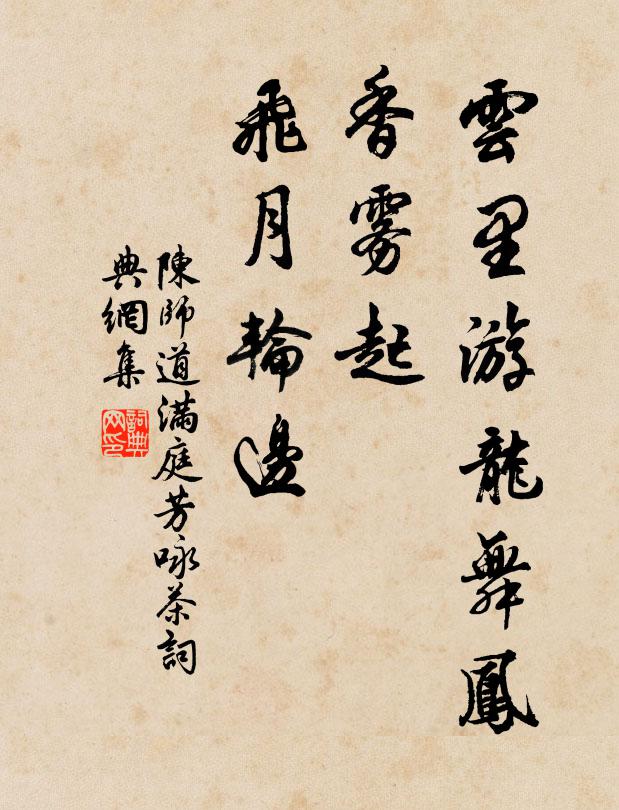 雲里游龍舞鳳
香霧起
飛月輪邊
陳師道滿庭芳咏茶詞
典網集
詞典网印